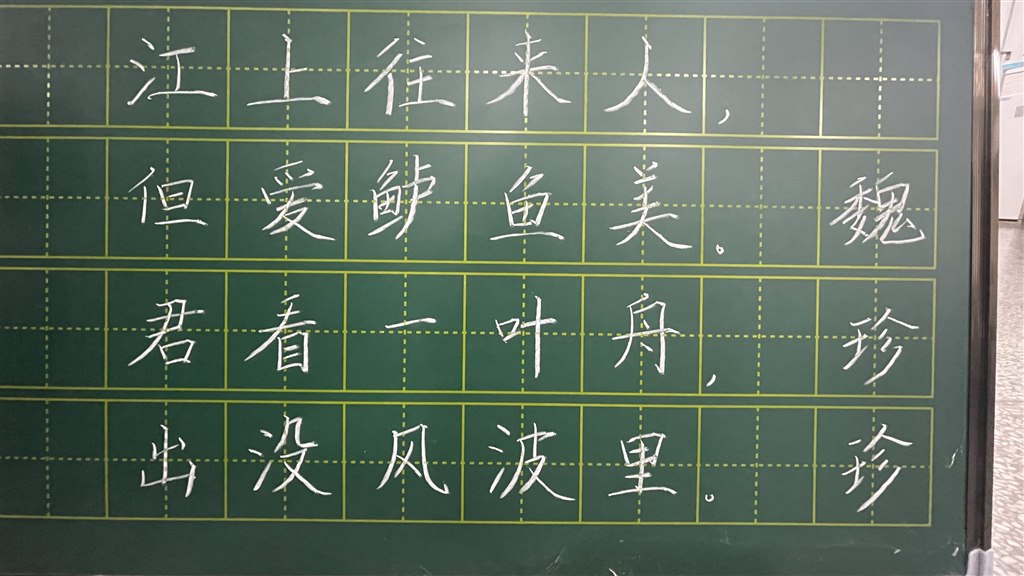 江上往来人，
但爱鲈鱼美。 魏
君看一叶舟， 珍
出没风波里。 珍